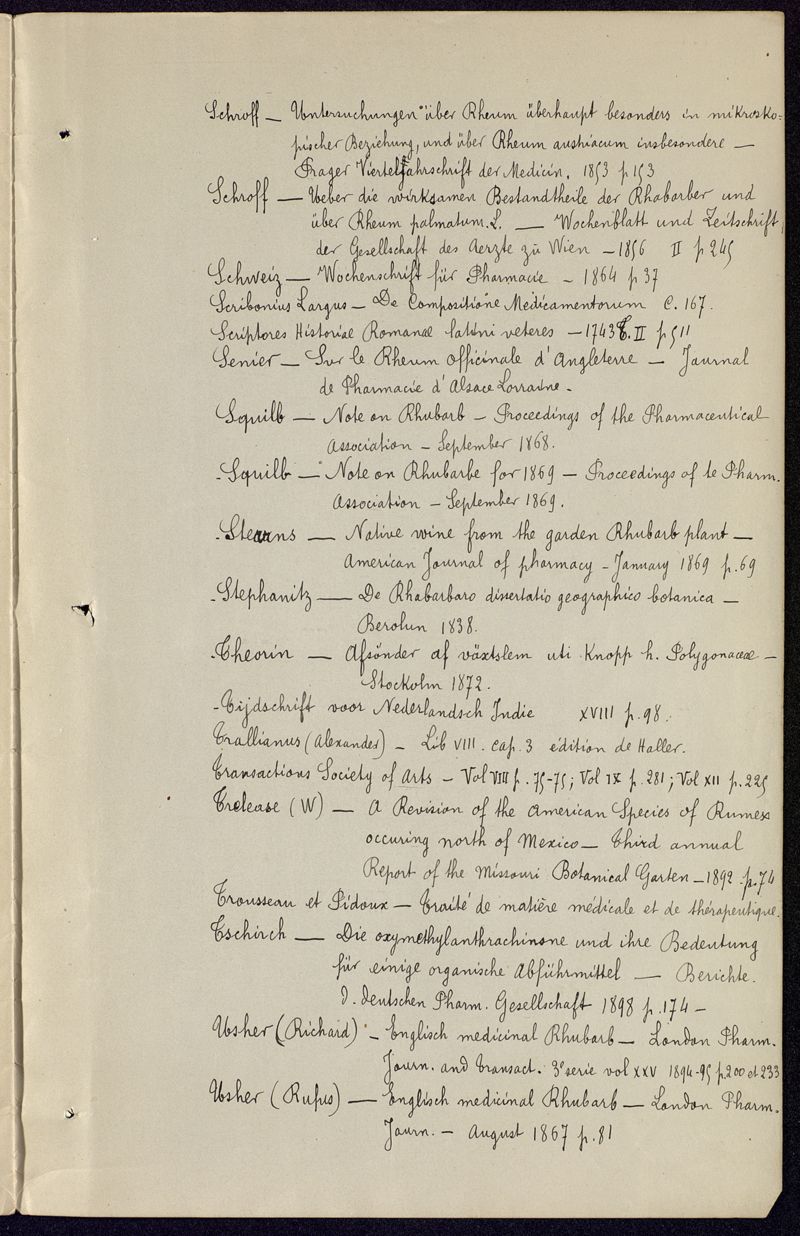 Schroff — Untersuchungen über Rheum überhaupt besonders in mikrosko-
pischer Beziehung, und über Rheum austriacum insbesondere —
Prager Vierteljahrschrift der Medicin. 1853 p 153
Schroff — Ueber die wirksamen Bestandtheile der Rhabarber und
über Rheum palmatum. L. — Wochenblatt und Zeitschrift,
der Gesellschaft des Aerzte zu Wien — 1856 II p 245
Schweiz — Wochenschrift für Pharmacie - 1864 p 37
Scribonius Largus — De Compositione Medicamentorum C. 167.
Scriptores Historiae Romanae latini veteres — 1743 T. II p 511
Senier — Sur le Rheum officinale d'Angleterre — Journal
de Pharmacie d'Alsace Lorraine -
Squilb — Note on Rhubarb — Proceedings of the Pharmaceutical
Association — September 1868.
- Squilb — Note on Rhubarbe for 1869 — Proceedings of te Pharm.
Association — September 1869.
- Stearns — Native wine from the garden Rhubarb plant —
American Journal of pharmacy - January 1869 p. 69
- Stephanitz — De Rhabarbaro dissertatio geographico botanica —
Berolun 1838.
- Theorin — Afsönder af växtslem uti Knopp h. Polygonaceae —
Stockolm 1872.
- Tijdschrift voor Nederlandsch Indie XVIII p. 98.
Trallianus (Alexander) - Lib VIII. cap. 3 édition de Haller.
Transactions Society of Arts - Vol VIII p. 75-75; Vol IX p. 281; Vol XII p. 225
Trelease (W) — A Revision of the American Species of Rumex
occuring north of Mexico — Third annual
Report of the Missouri Botanical Garten — 1892 p. 74
Trousseau et Pidoux — Traité de matière médicale et de thérapeutique.
Tschirch — Die oxymethylanthrachinone und ihre Bedentung
für einige organische Abführmittel — Berichte.
d. deutschen Pharm. Gesellschaft 1898 p. 174 -
Usher (Richard) - Englisch medicinal Rhubarb — London Pharm.
Journ. and Transact. 3e serie vol XXV 1894-95 p. 200 et 233
Usher (Rufus) — Englisch medicinal Rhubarb — London Pharm.
Journ. — August 1867 p. 81